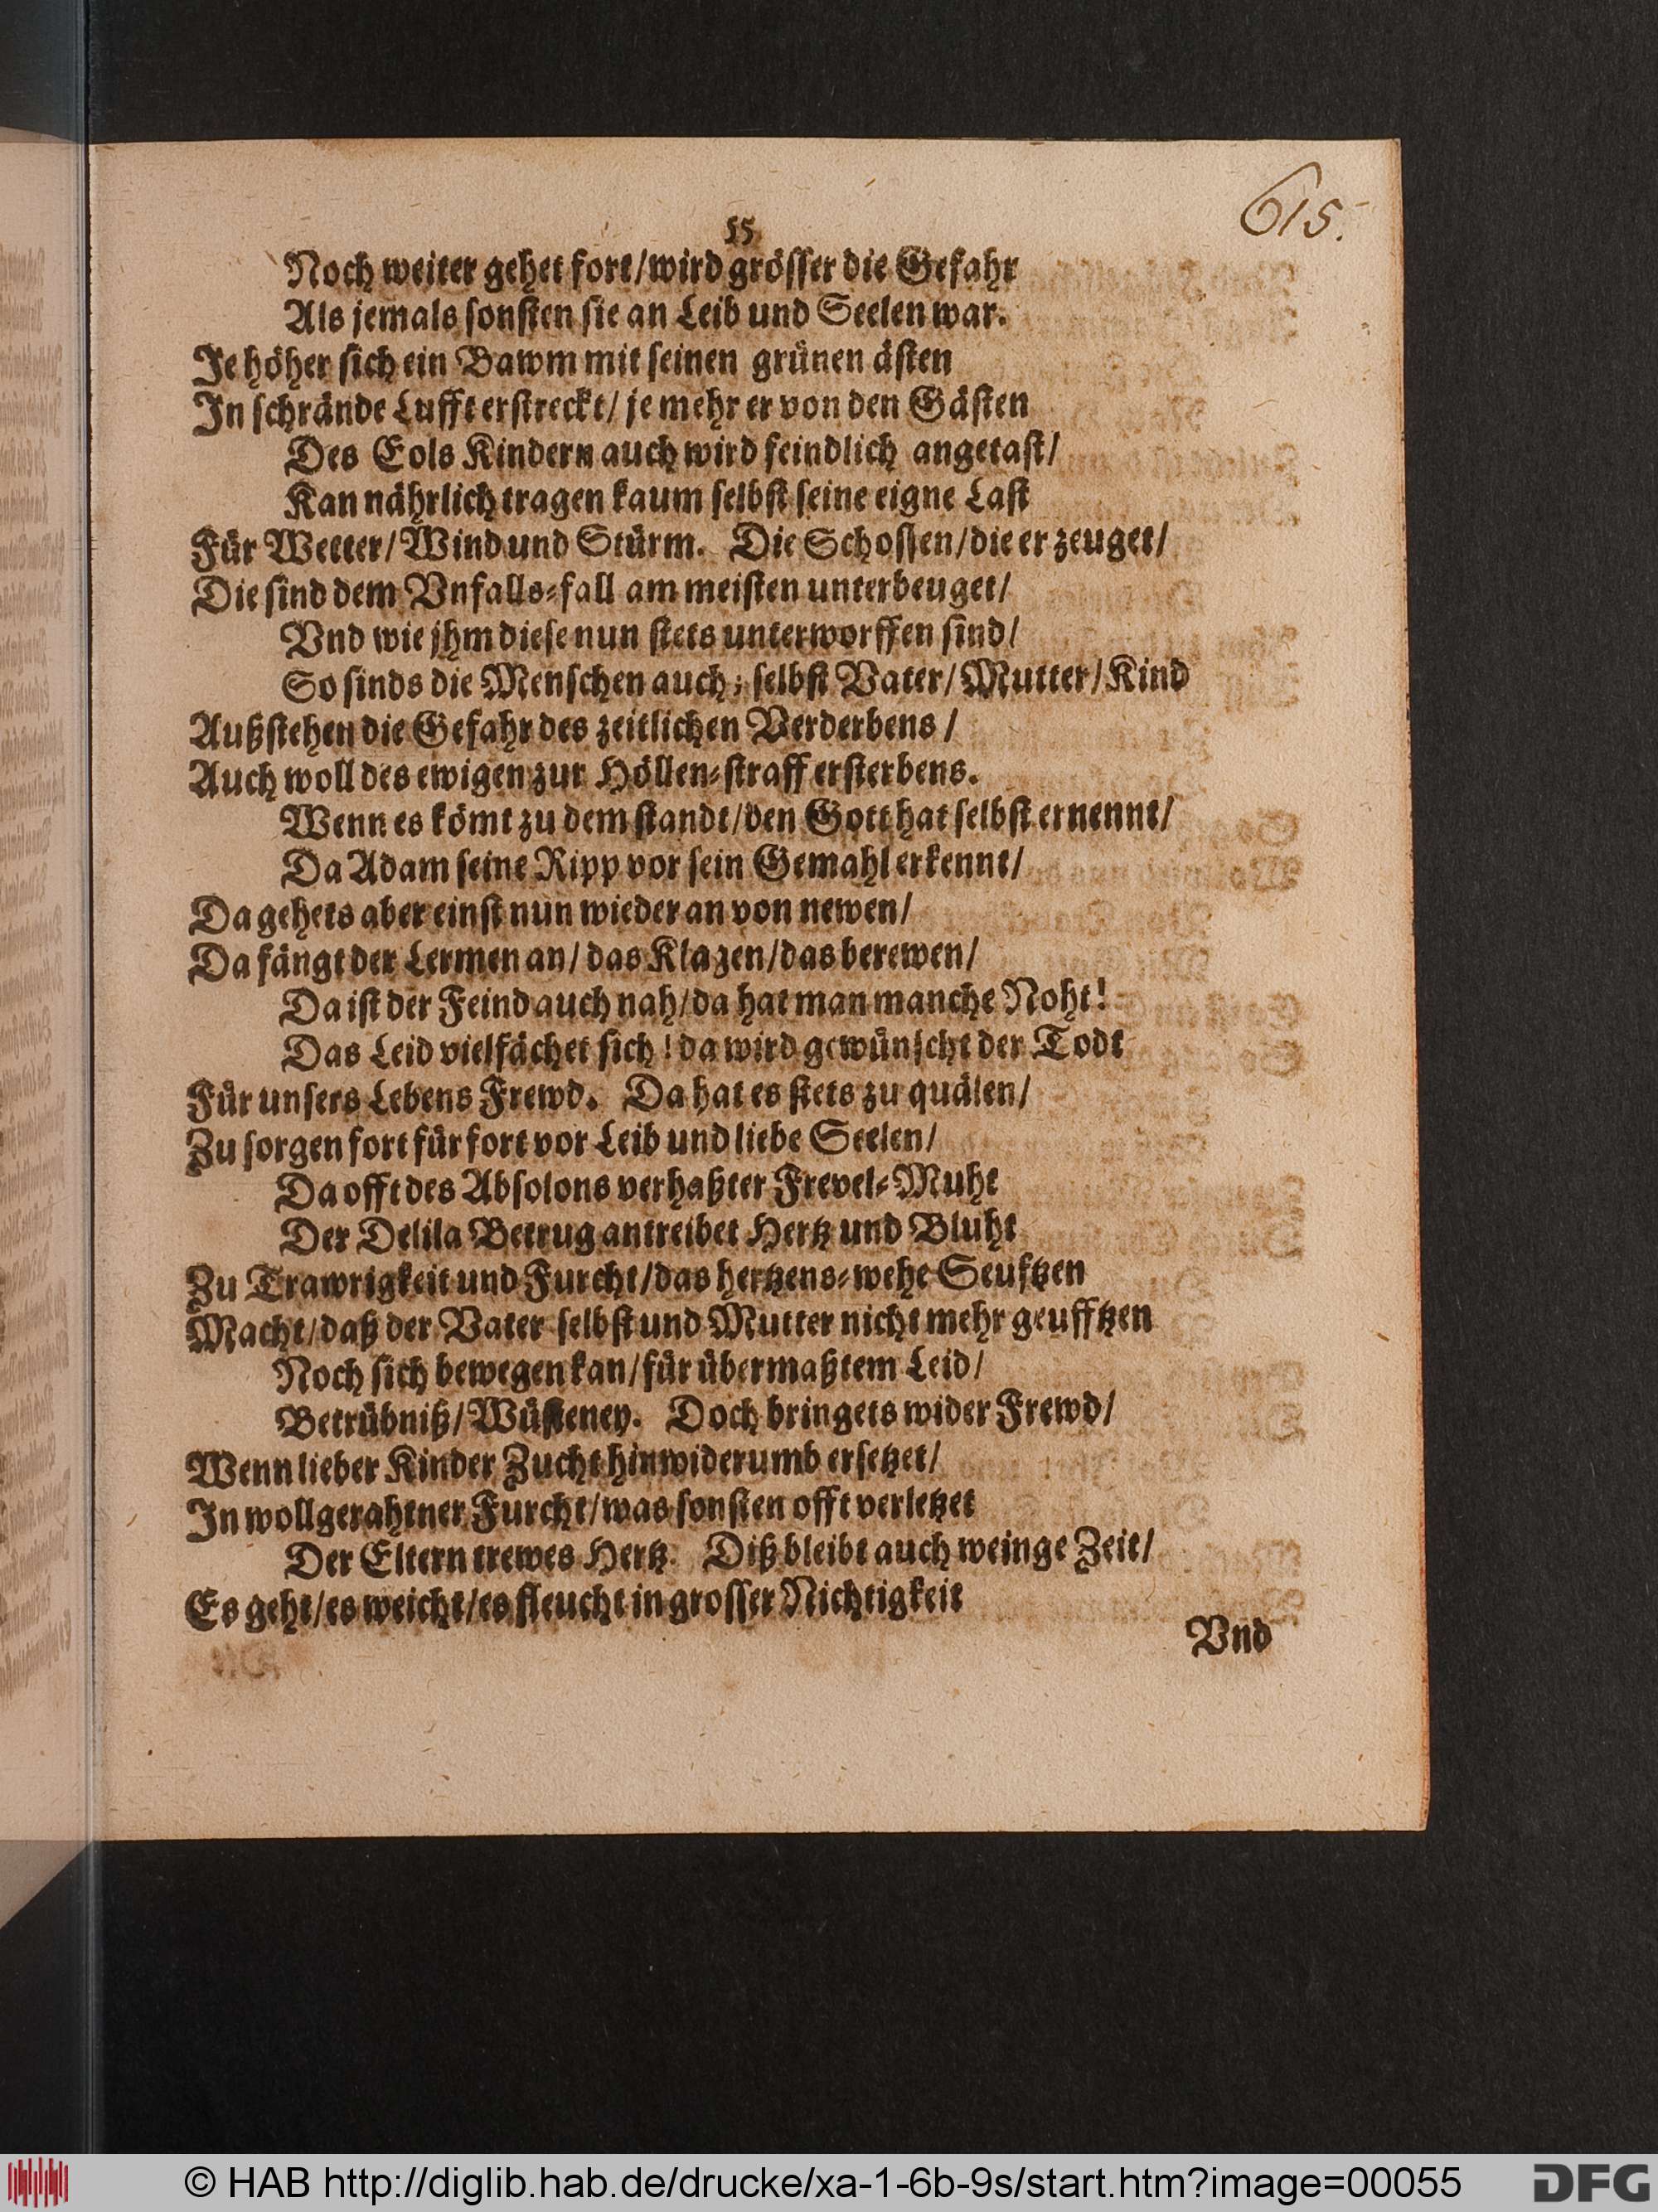 615.
15
Noch weiter gehet fort/wird grösser die Gefahr
Als jemals sonsten sie an Leib und Seelen war.
Je höher sich ein Bawm mit seinen grünen ästen
In schrände Lufft erstreckt/ je mehr er von den Gästen
Des Eols Kindern auch wird feindlich angetast/
Kan nährlich tragen kaum selbst seine eigne Last
Für Wetter/Wind und Stürm. Die Schossen/die er zeuget/
Die sind dem Vnfalls-fall am meisten unterbeuget/
Vnd wie jhm diese nun stets unterworffen sind/
So sinds die Menschen auch; selbst Vater/Mutter/Kind
Außstehen die Gefahr des zeitlichen Verderbens/
Auch woll des ewigen zur Höllen-straff ersterbens.
Wenn es kömt zu dem standt/den Gott hat selbst ernennt/
Da Adam seine Ripp vor sein Gemahl erkennt/
Da gehets aber einst nun wieder an von newen/
Da fängt der Lermen an/das Klagen/das berewen/
Da ist der Feind auch nah/da hat man manche Noht!
Das Leid vielfächet sich! da wird gewünscht der Todt
Für unsers Lebens Frewd. Da hat es stets zu quälen/
Zu sorgen fort für fort vor Leib und liebe Seelen/
Da offt des Absolons verhaßter Frevel-Muht
Der Delila Betrug antreibet Hertz und Bluht
Zu Trawrigkeit und Furcht/das hertzens-wehe Seufftzen
Macht/daß der Vater selbst und Mutter nicht mehr geufftzen
Noch sich bewegen kan/für übermaßtem Leid/
Betrübniß/Wüsteney. Doch bringets wider Frewd/
Wenn lieber Kinder Zucht hinwiderumb ersetzet/
In wollgerahtner Furcht/was sonsten offt verletzet
Der Eltern trewes Hertz. Diß bleibt auch weinge Zeit/
Es geht/es weicht/es fleucht in grosser Nichtigkeit
Vnd
© HAB http://diglib.hab.de/drucke/xa-1-6b-9s/start.htm?image=00055
DFG